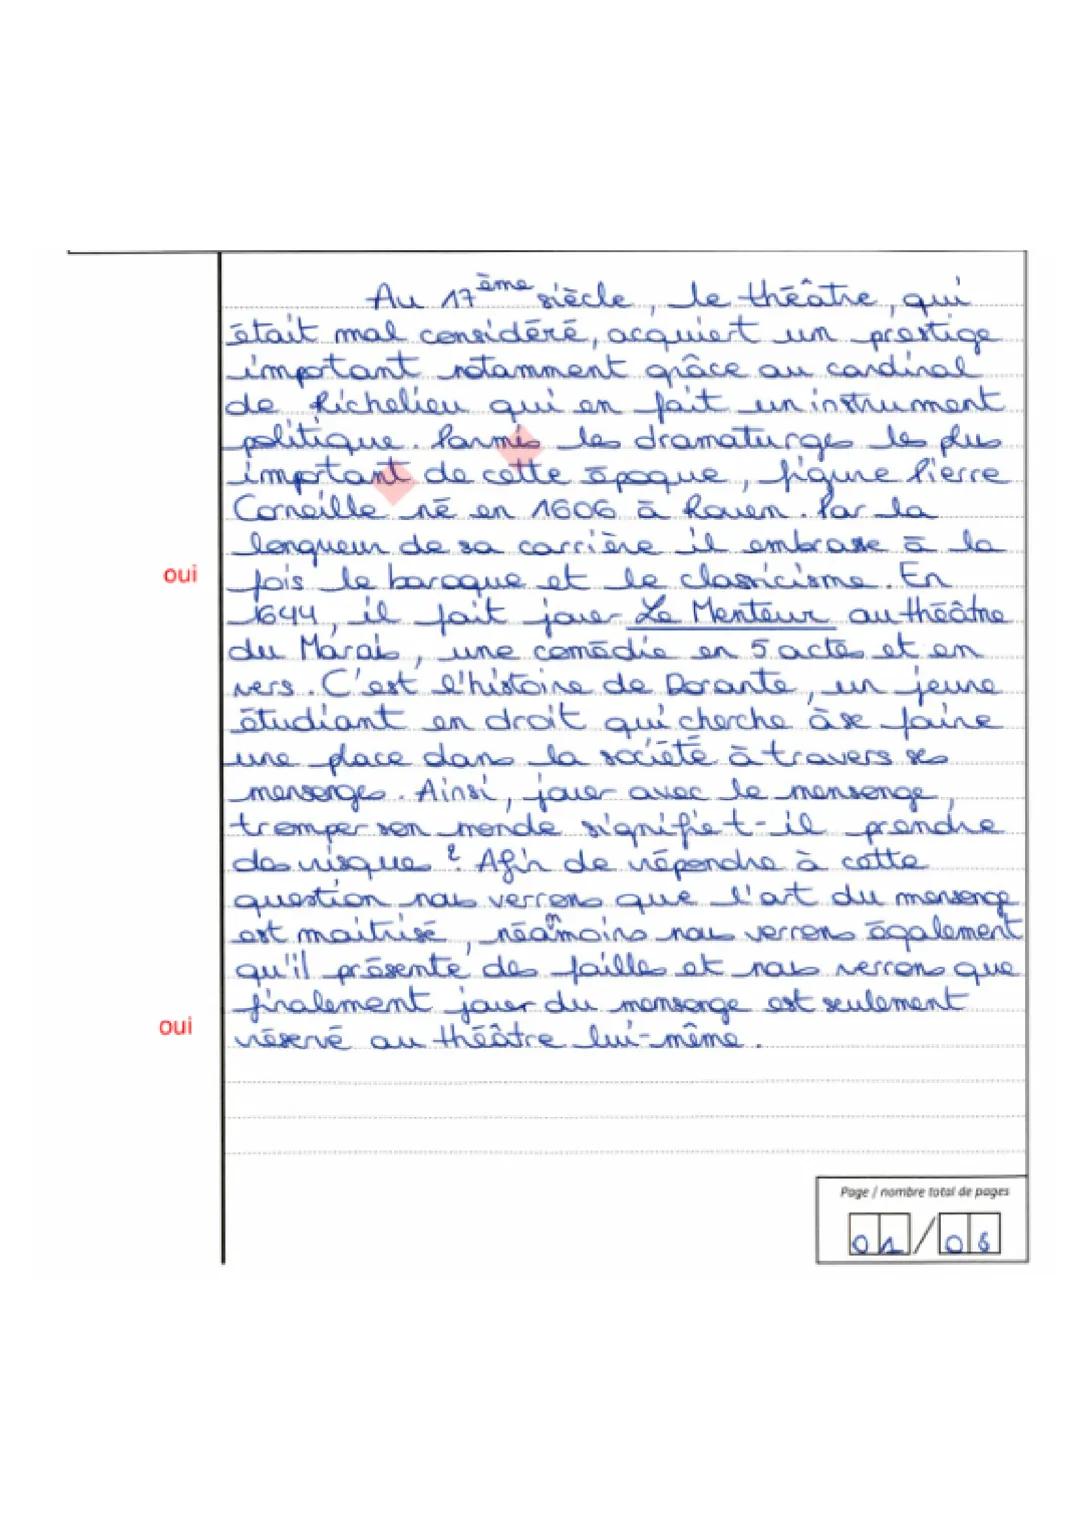 Au 17ème siècle, le théâtre, qui
était mal considéré, acquiert un prestige
important notamment grâce au cardinal
de Richelieu qui en fait un instrument
politique. Parmis les dramaturges les plus
important de cette époque, figure Pierre
Corneille né en 1606 à Rouen. Par la
longueur de sa carrière il embrasse à la
oui
fois le baroque et le classicisme. En
1644, il fait jouer Le Menteur au théâtre
du Marais, une comédie en 5 actes et en
vers. C'est l'histoire de Dorante, un jeune
étudiant en droit qui cherche à se faire
une place dans la société à travers ses
mensonges. Ainsi, jouer avec le mensonge,
tromper son monde signifiet-il prendre
des risques ? Afin de répondre à cette
question nous verrons que l'art du mensonge
est maitrisé, néanmoins nous verrons également
qu'il présente des failles et nous verrons que
finalement jouer du mensonge est seulement
oui
réservé au théâtre lui-même.
Page / nombre total de pages
01/06